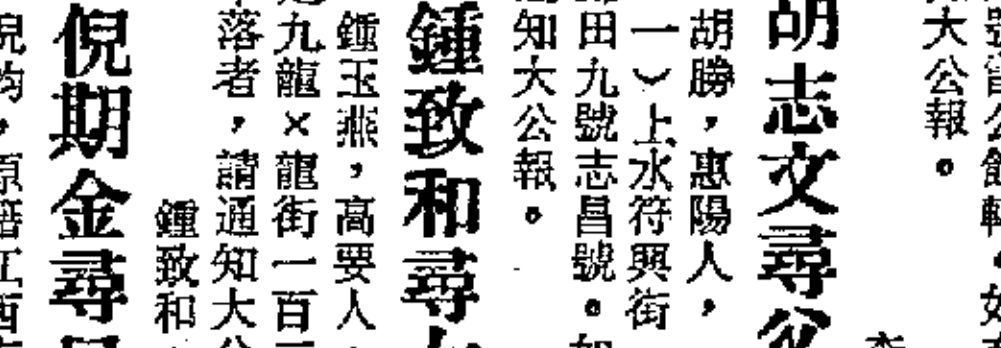 大公報。
胡志文尋
胡勝，惠陽人，
一）上水符興街
田九號志昌號。如
知大公報。
鍾致和尋
鍾玉燕，高要人，
九龍×龍街一百
落者，請通知大公
鍾致和
倪期金尋